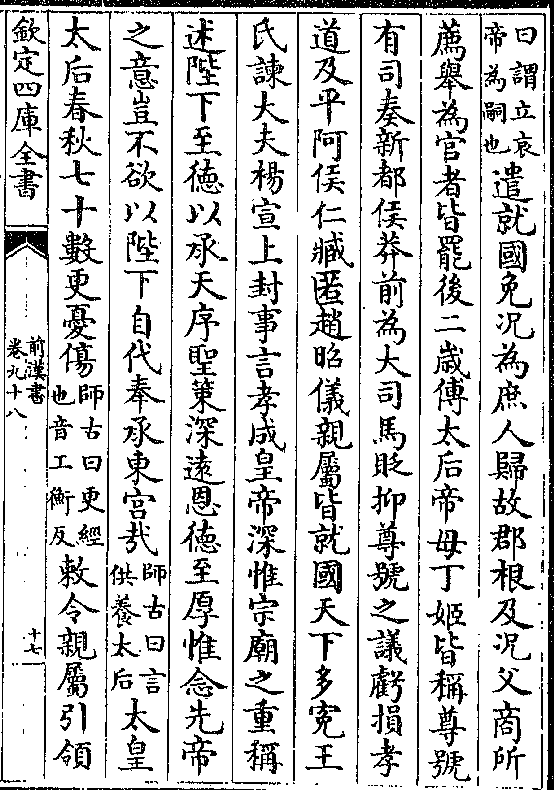 曰謂立哀帝為嗣也遣就國免况為庶人歸故郡根及况父商所
薦舉為官者皆罷後二歲傅太后帝母丁姬皆稱尊號
有司奏新都侯莽前為大司馬貶抑尊號之議虧損孝
道及平阿侯仁臧匿趙昭儀親屬皆就國天下多寃王
氏諫大夫楊宣上封事言孝成皇帝深惟宗廟之重稱
述陛下至德以承天序聖策深遠恩德至厚惟念先帝
之意豈不欲以陛下自代奉承東宮哉師古曰言供養太后太皇
太后春秋七十數更憂傷師古曰更經也音工衡反敕令親屬引領
欽定四庫全書
前漢書
卷九十八
十七